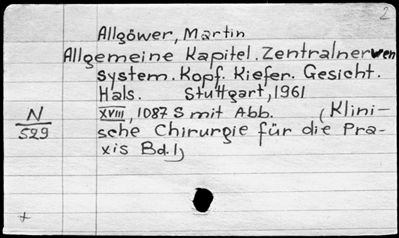 2
Allgöwer, Martin
Allgemeine Kapitel. Zentralnerven
system. Kopf. Kiefer. Gesicht.
Hals. Stuttgart, 1961
N
529
XVIII, 1087 S mit Abb. (Klini-
sche Chirurgie für die Pra-
xis Bd. 1)
+